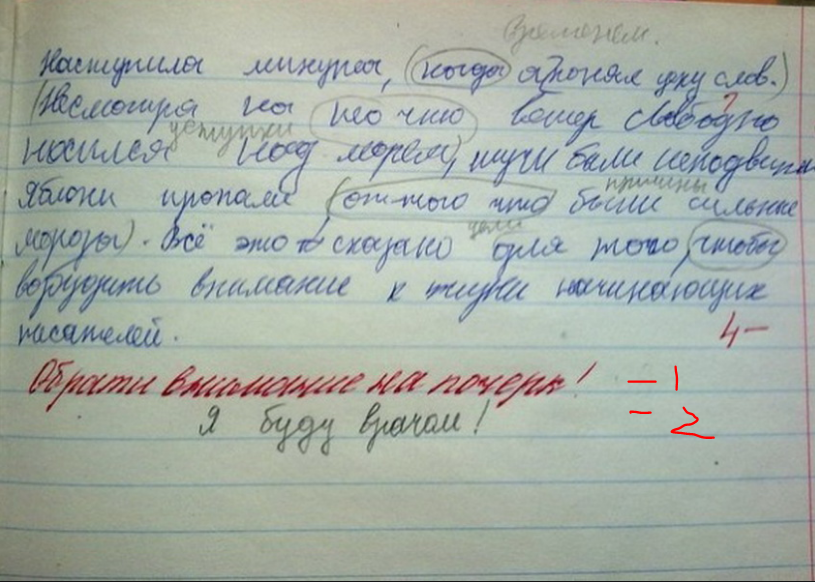 Временем.
Наступила минута, (когда я понял цену слов.)
(Несмотря на то что ветер свободно
уступки
носился над морем), тучи были неподвижн
причины
Яблони пропали (оттого что были сильные
цели
морозы). Всё это я сказано для того, чтобы
возбудить внимание к жизни начинающих
писателей.
4-
Обрати внимание на почерк! - 1
Я буду врачом! = 2